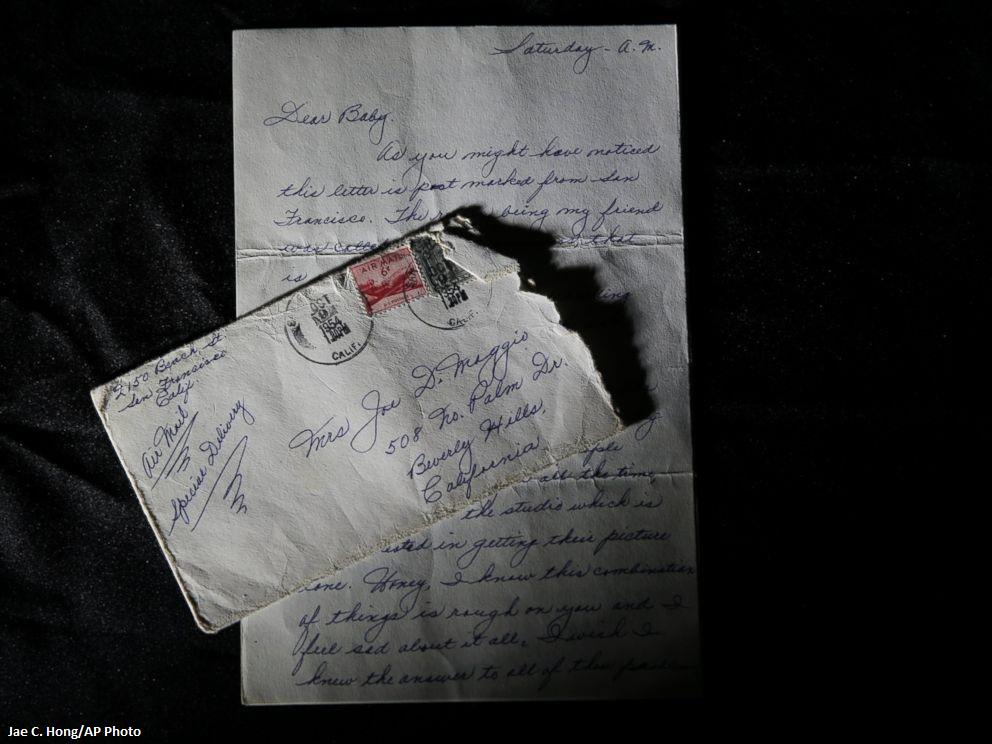 Saturday - A.M.
Dear Baby,
As you might have noticed
this letter is post marked from San
Francisco. The being my friend
was that
is
ing
AIR MAIL
6¢
OCT
1954
CALIF.
1954
CALIF.
2150 Beach St.
San Francisco
Calif.
Air Mail
Special Delivery
Mrs Joe Di Maggio
508 No. Palm Dr.
Beverly Hills,
California
ple
all the time,
the studio which is
ested in getting their picture
one. Honey, I know this combination
of things is rough on you and I
feel sad about it all. I wish I
knew the answer to all of this
Jae C. Hong/AP Photo